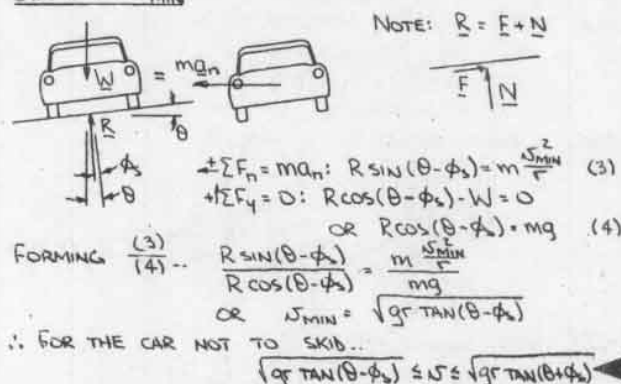 NOTE: R = F + N
W = man
F N
R
θ
ϕs
θ
±ΣFn = man: R SIN(θ-ϕs) = m v²MIN/r (3)
+↑ΣFy = 0: R COS(θ-ϕs) - W = 0
OR R COS(θ-ϕs) = mg (4)
FORMING (3)/(4) .. R SIN(θ-ϕs)/R COS(θ-ϕs) = m v²MIN/r / mg
OR vMIN = √gr TAN(θ-ϕs)
∴ FOR THE CAR NOT TO SKID...
√gr TAN(θ-ϕs) ≤ v ≤ √gr TAN(θ+ϕs)